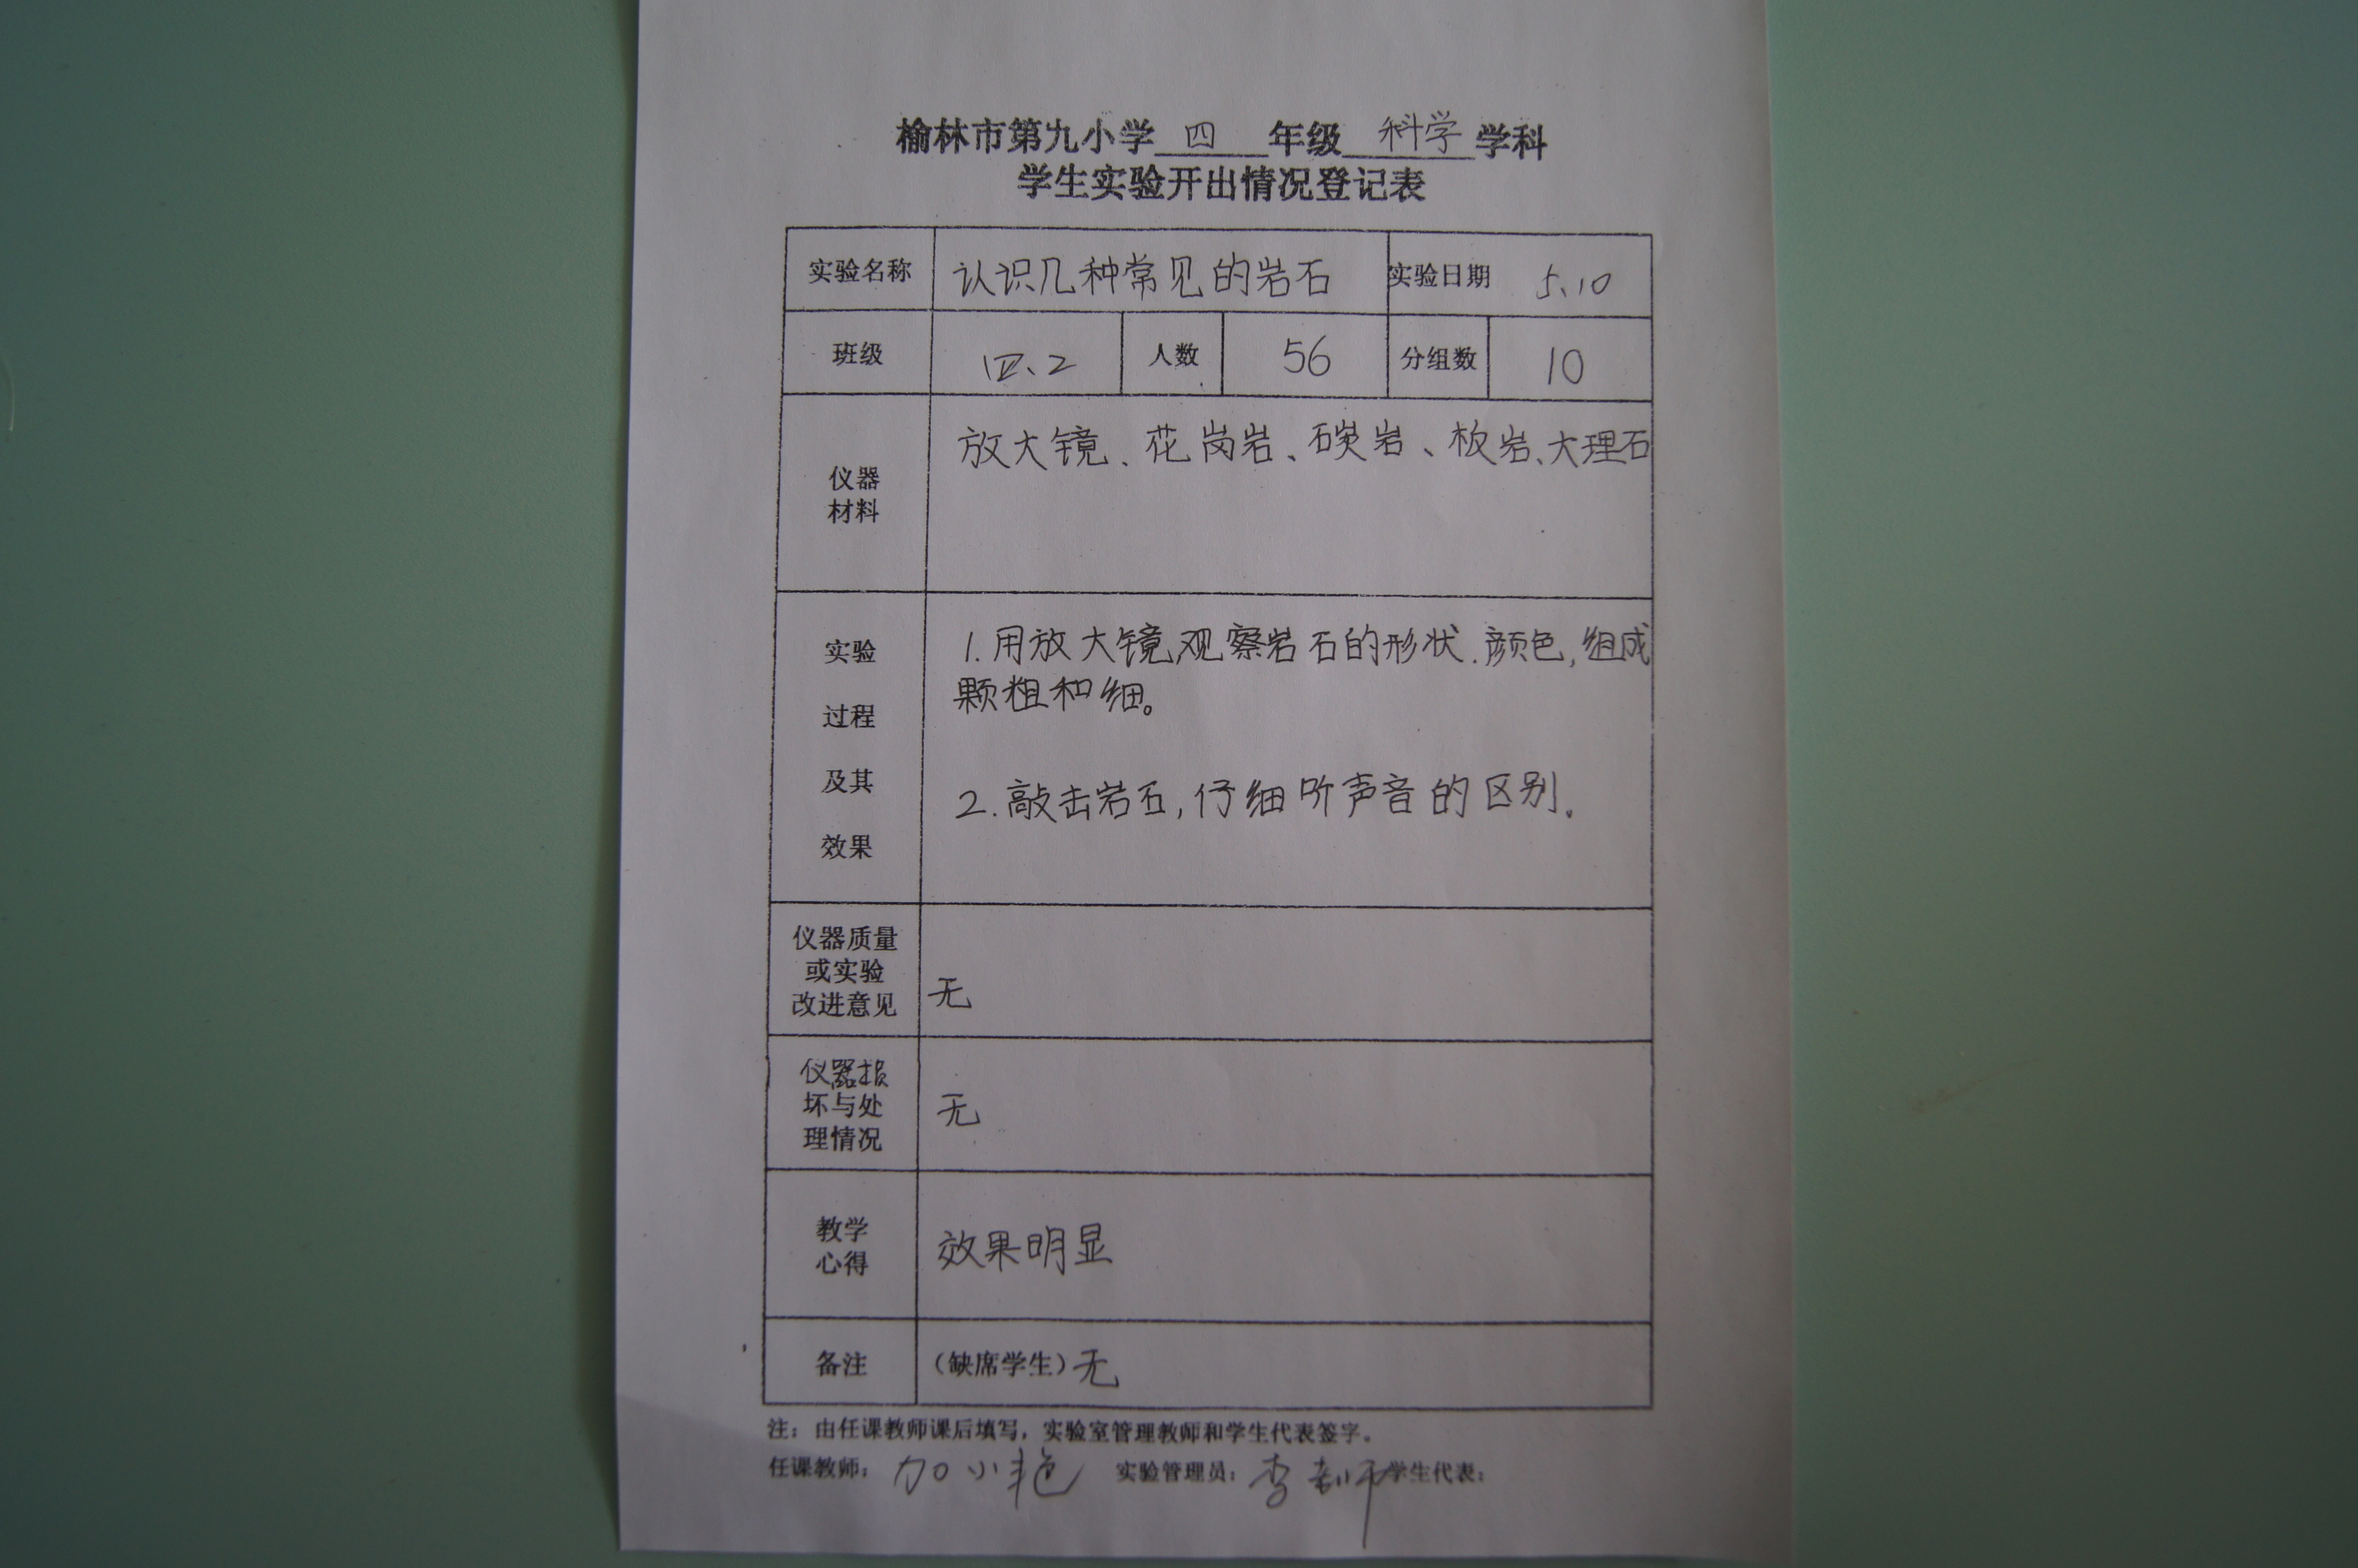 榆林市第九小学 四 年级 科学 学科
学生实验开出情况登记表
实验名称 认识几种常见的岩石 实验日期 5.10
班级 四.2 人数 56 分组数 10
仪器
材料
放大镜、花岗岩、碳岩、板岩、大理石
实验
过程
及其
效果
1.用放大镜观察岩石的形状.颜色,组成
颗粗和细。
2.敲击岩石,仔细听声音的区别。
仪器质量
或实验
改进意见
无
仪器损
坏与处
理情况
无
教学
心得
效果明显
备注 (缺席学生)无
注:由任课教师课后填写,实验室管理教师和学生代表签字。
任课教师: 加小艳 实验管理员: 李 学生代表: